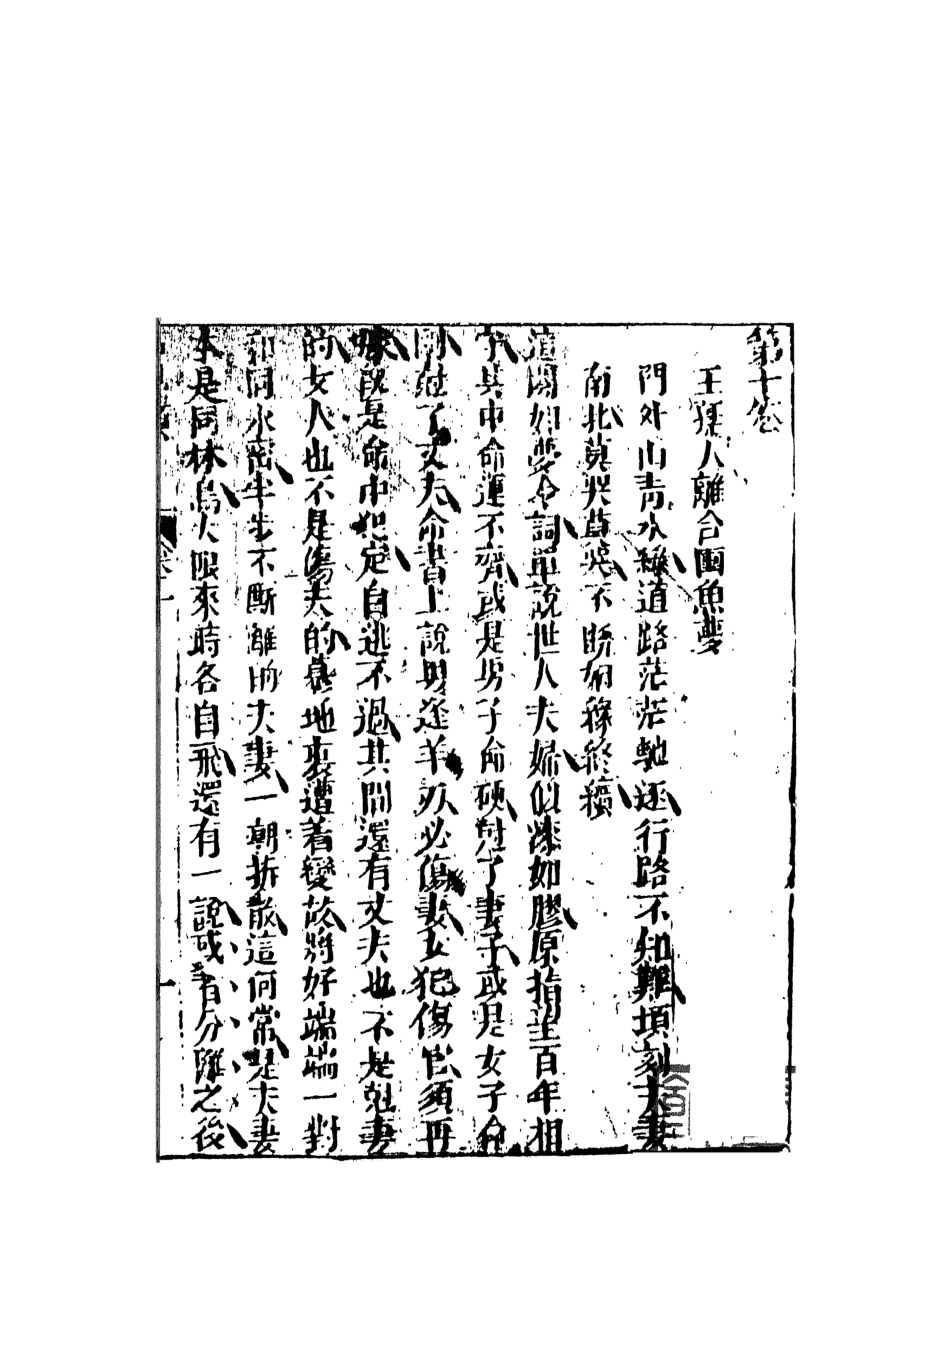 第十卷
王孺人離合團魚夢
門外山青水綠道路茫茫馳逐行路不知難頃刻夫妻
南北莫哭莫哭不斷姻緣終續
這闋如夢令詞單說世人夫婦似漆如膠原指望百年相
守其中命運不齊或是男子命硬尅了妻子或是女子命
剛尅了丈夫命書上說男逢羊刃必傷妻女犯傷官須再
嫁旣是命中犯定自逃不過其間還有丈夫也不是尅妻
的女人也不是傷夫的驀地裏遭着變故將好端端一對
和同水密半步不斷離的夫妻一朝折散這何常是夫妻
本是同林鳥大限來時各自飛還有一說或者分離之後